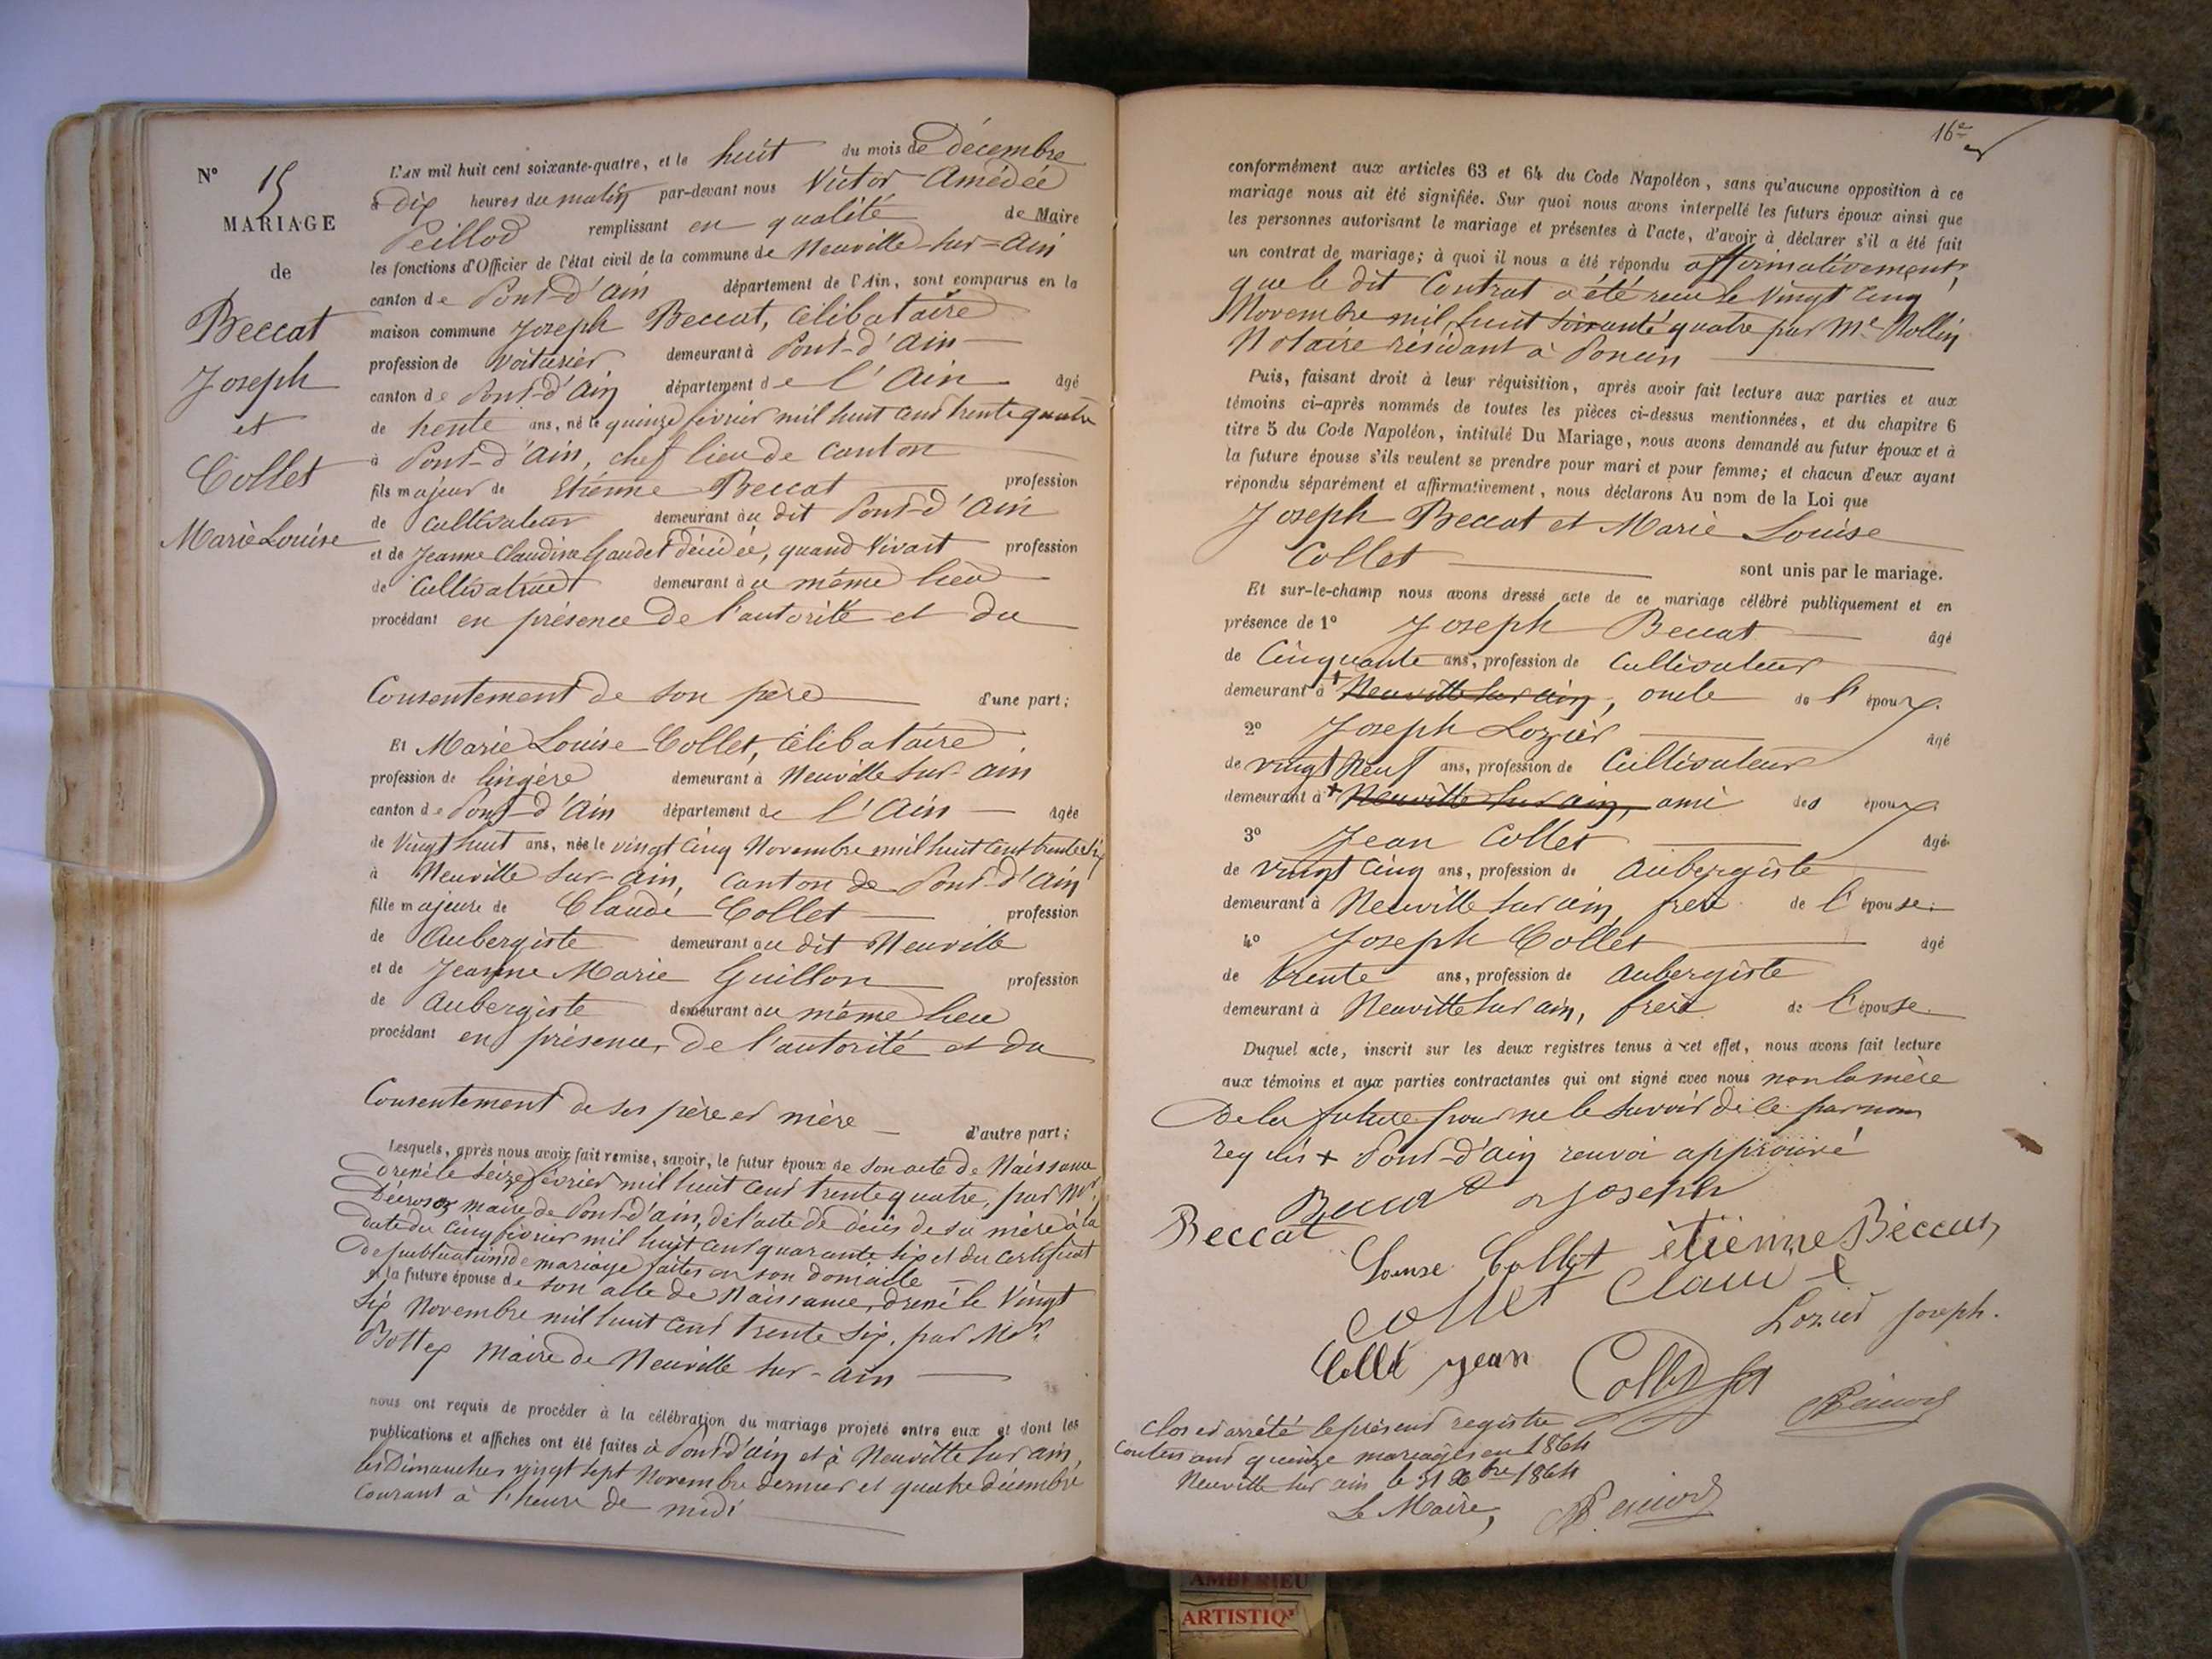 N° 15
MARIAGE
de
Beccat
Joseph
et
Collet
Marie Louise
L'AN mil huit cent soixante-quatre, et le huit du mois de Décembre
à Dix heures du matin par-devant nous Victor Amédée
Peillod remplissant en qualité de Maire
les fonctions d'Officier de l'état civil de la commune de Neuville-sur-Ain
canton de Pont-d'Ain département de l'Ain, sont comparus en la
maison commune Joseph Beccat, célibataire
profession de Voiturier demeurant à Pont-d'Ain
canton de Pont-d'Ain département de l'Ain âgé
de trente ans, né le quinze février mil huit cent trente quatre
à Pont-d'Ain, chef lieu de Canton
fils majeur de Etienne Beccat profession
de Cultivateur demeurant au dit Pont-d'Ain
et de Jeanne Claudine Gaudet décédée, quand vivait profession
de Cultivatrice demeurant au même lieu
procédant en présence de l'autorité et du
Consentement de son père d'une part;
Et Marie Louise Collet, célibataire
profession de lingère demeurant à Neuville sur-ain
canton de Pont-d'Ain département de l'Ain âgée
de Vingt huit ans, née le vingt cinq Novembre mil huit cent trente six
à Neuville sur-ain, Canton de Pont-d'Ain
fille majeure de Claude Collet profession
de Aubergiste demeurant au dit Neuville
et de Jeanne Marie Guillon profession
de Aubergiste demeurant au même lieu
procédant en présence, de l'autorité et du
Consentement de ses père et mère d'autre part;
Lesquels, après nous avoir fait remise, savoir, le futur époux de son acte de Naissance
dressé le seize février mil huit cent trente quatre, par Mr
maire de Pont-d'ain, de l'acte de décès de sa mère à la
date du cinq février mil huit cent quarante six et du certificat
de publications de mariage faites en son domicile
et la future épouse de son acte de Naissance, dressé le Vingt
six Novembre mil huit cent trente six, par Mr
Bottex Maire de Neuville sur-ain
nous ont requis de procéder à la célébration du mariage projeté entre eux et dont les
publications et affiches ont été faites à Pont d'ain et à Neuville sur ain,
les Dimanches vingt sept Novembre dernier et quatre décembre
courant à l'heure de midi
16e
conformément aux articles 63 et 64 du Code Napoléon, sans qu'aucune opposition à ce
mariage nous ait été signifiée. Sur quoi nous avons interpellé les futurs époux ainsi que
les personnes autorisant le mariage et présentes à l'acte, d'avoir à déclarer s'il a été fait
un contrat de mariage; à quoi il nous a été répondu affirmativement,
que le dit Contrat a été reçu le vingt cinq
Novembre mil huit soixante quatre par Me Rollin
Notaire résidant à Poncin
Puis, faisant droit à leur réquisition, après avoir fait lecture aux parties et aux
témoins ci-après nommés de toutes les pièces ci-dessus mentionnées, et du chapitre 6
titre 5 du Code Napoléon, intitulé Du Mariage, nous avons demandé au futur époux et à
la future épouse s'ils veulent se prendre pour mari et pour femme; et chacun d'eux ayant
répondu séparément et affirmativement, nous déclarons Au nom de la Loi que
Joseph Beccat et Marie Louise
Collet sont unis par le mariage.
Et sur-le-champ nous avons dressé acte de ce mariage célébré publiquement et en
présence de 1° Joseph Beccat âgé
de Cinquante ans, profession de Cultivateur
demeurant à + Neuville sur ain, oncle de l'époux.
2° Joseph Lozier âgé
de vingt Neuf ans, profession de Cultivateur
demeurant à + Neuville sur ain, ami des époux.
3° Jean Collet âgé
de vingt cinq ans, profession de Aubergiste
demeurant à Neuville sur ain, frère de l'épouse.
4° Joseph Collet âgé
de trente ans, profession de Aubergiste
demeurant à Neuville sur ain, frère de l'épouse.
Duquel acte, inscrit sur les deux registres tenus à cet effet, nous avons fait lecture
aux témoins et aux parties contractantes qui ont signé avec nous non la mère
de la future pour ne le savoir de ce par nous
requis + Pont-d'ain renvoi approuvé
Beccat Joseph
Beccat
Louise Collet etienne Béccat
Collet Claude
Lozier Joseph.
Collet jean
Clos et arrêté le présent registre
Contenant quinze mariages en 1864
Neuville sur ain le 31 Xbre 1864
Le Maire,
AMBERIEU
ARTISTIQ